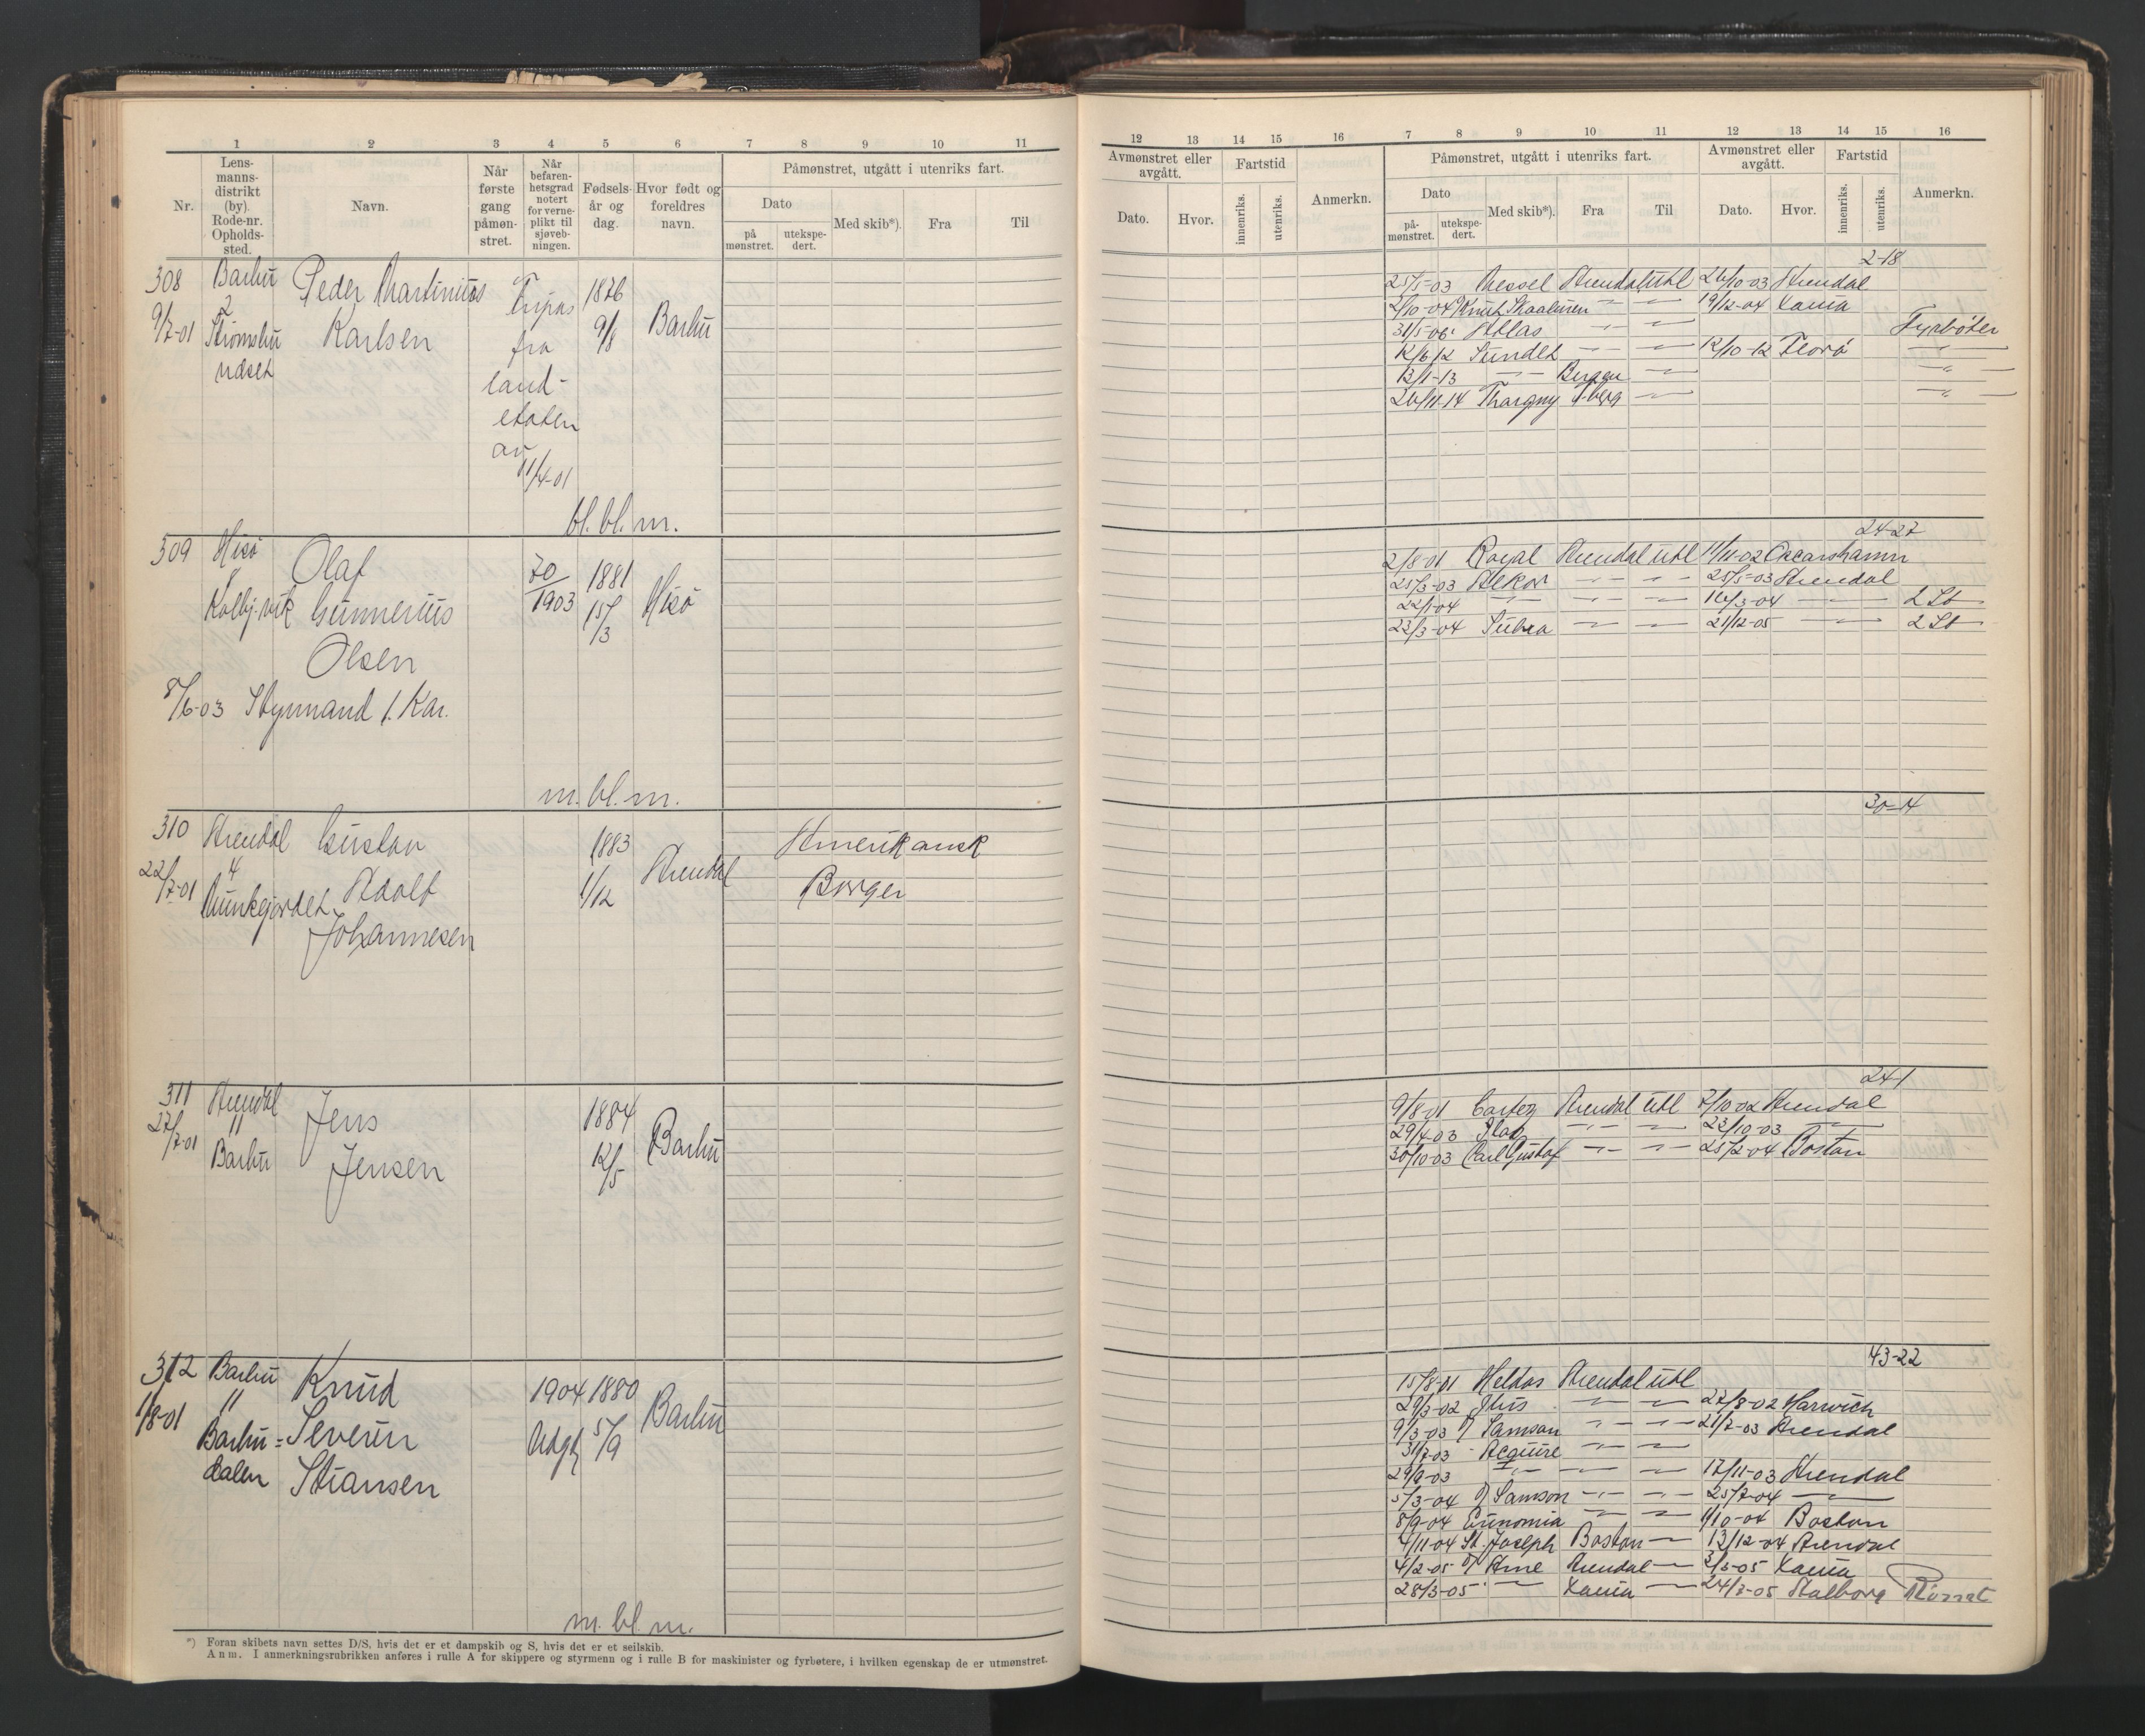 1 2 3 4 5 6 7 8 9 10 11
Nr. Lensmannsdistrikt (by). Rode-nr. Opholdssted. Navn. Når første gang påmønstret. Når befarenhetsgrad notert for verneplikt til sjøvebningen. Fødselsår og dag. Hvor født og foreldres navn. Påmønstret, utgått i utenriks fart.
Dato
på mønstret. utekspedert. Med skib*). Fra Til
308 Barbu Peder Martinius 1876
9/7-01 2 Karlsen fra 9/8 Barbu
Strømsbu
land-
etaten
av
11/4-01
bl. bl. m.
309 Hisø Olaf 70/1903 1881 Hisø
Kolbj.vik Gunnerius 15/3
Olsen
8/6-03 Styrmand f. Kar.
m. bl. m.
310 Arendal Gustav 1883 Arendal Amerikansk
22/7-01 4 Adolf 1/12 Borger
Munkegjordet Johannesen
311 Arendal Jens 1884 Barbu
27/7-01 " Jensen 12/5
Barbu
312 Barbu Knud 1904 1880 Barbu
1/8-01 " Severin Udgt 5/9
Barbu=
dalen Stiansen
m. bl. m.
*) Foran skibets navn settes D/S, hvis det er et dampskib og S, hvis det er et seilskib.
Anm. I anmerkningsrubrikken anføres i rulle A for skippere og styrmenn og i rulle B for maskinister og fyrbøtere, i hvilken egenskap de er utmønstret.
12 13 14 15 16 7 8 9 10 11 12 13 14 15 16
Avmønstret eller avgått. Fartstid Anmerkn. Påmønstret, utgått i utenriks fart. Avmønstret eller avgått. Fartstid Anmerkn.
Dato. Hvor. innenriks. utenriks. Dato Med skib*). Fra Til Dato. Hvor. innenriks. utenriks.
påmønstret. utekspedert.
2-18
25/5-03 Nessel Arendal utl 26/10-03 Arendal
2/10-04 Knut Skaaluren " " 19/12-04
31/5-06 Atlas " " Fyrbøter
12/6 12 Sundet " " 12/10-12 Florø "
13/1-13 " Bergen " "
26/11-14 Thorgny " "
24-27
2/8-01 Royal Arendal utl 11/11-02 Oscarshamn
25/3-03 Alkor " " 25/5-03 Arendal
22/1-04 " " " 16/3-04 " 2 St
23/3-04 " " 21/12-05 " 2 St
30-14
24-1
9/8-01 Arendal utl 7/10-02 Arendal
29/4-03 Olav " " 23/10-03 "
30/10-03 Carl Gustaf " " 25/2-04 Boston
43-22
15/8-01 Heldos Arendal utl
29/3-02 " " 27/8-02 Harwich
9/3-03 Samson " " 21/7-03 Arendal
31/7-03 Acquire " "
29/9-03 " " " 17/11-03 Arendal
5/3-04 Samson " " 25/7-04 "
8/9-04 Eunomia " " 1/10-04 Boston
4/11-04 St. Joseph Boston " 13/12-04 Arendal
4/2-05 Arne Arendal " 3/3-05
28/3-05 " " 24/7-05 Aalborg Rømt